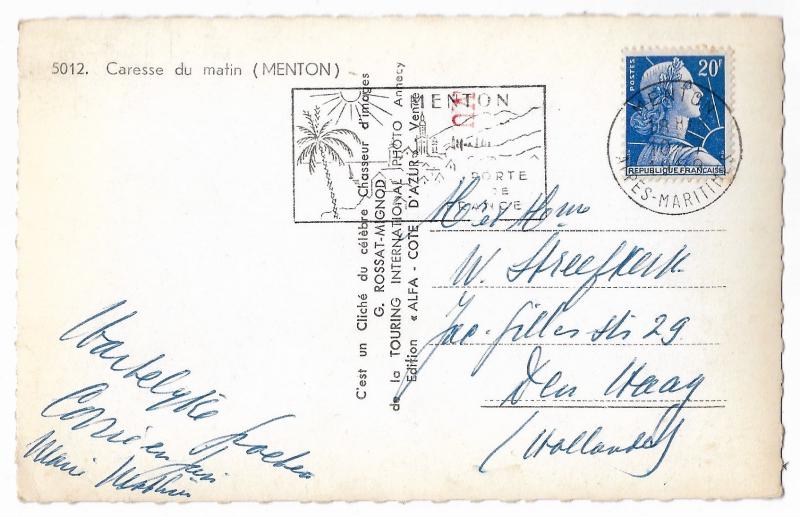 5012. Caresse du matin (MENTON)
MENTON
PORTE
DE
FRANCE
POSTES
20F
REPUBLIQUE FRANÇAISE
MENTON
ALPES-MARITIMES
C'est un Cliché du célèbre Chasseur d'images
G. ROSSAT-MIGNOD
de la TOURING INTERNATIONAL PHOTO Annecy
Edition « ALFA - COTE D'AZUR » Vence
W. Streefkerk
Jac. Gillesstr 29
Den Haag
(Holland)
Hartelijke groeten
Corrie en